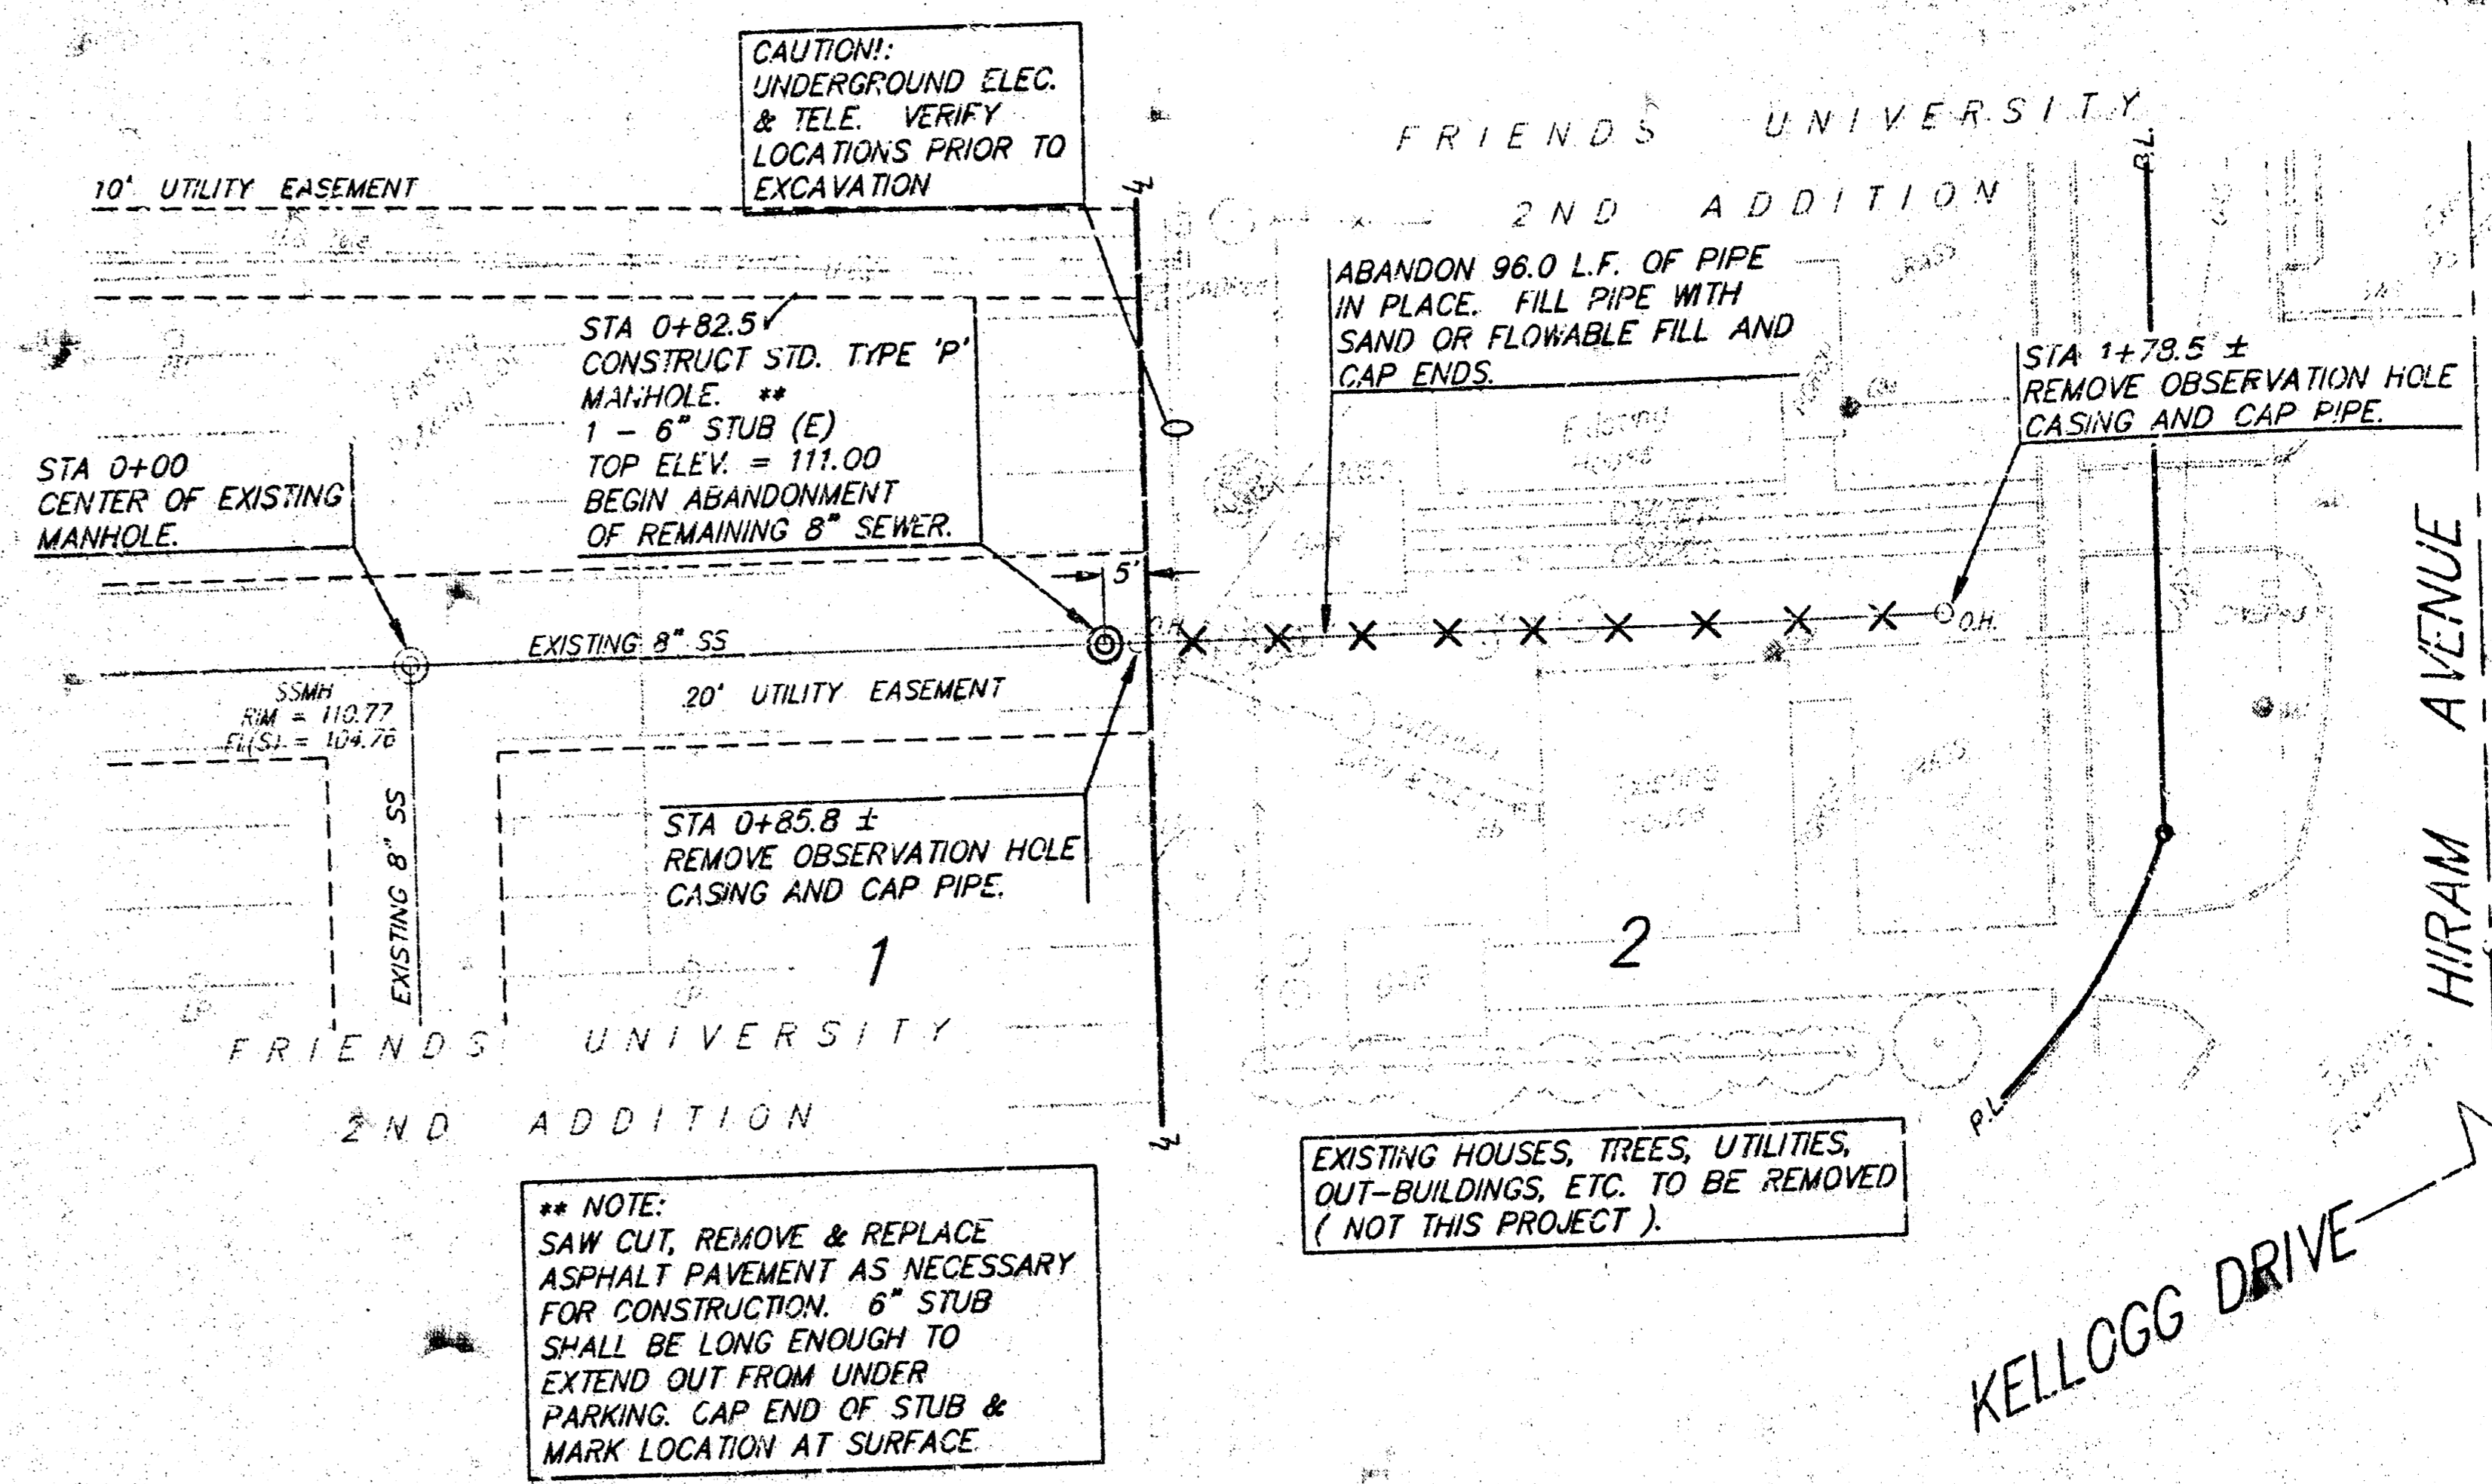 CAUTION!:
UNDERGROUND ELEC.
& TELE. VERIFY
LOCATIONS PRIOR TO
EXCAVATION
FRIENDS UNIVERSITY
2ND ADDITION
P.L.
10' UTILITY EASEMENT
ABANDON 96.0 L.F. OF PIPE
IN PLACE. FILL PIPE WITH
SAND OR FLOWABLE FILL AND
CAP ENDS.
STA 0+82.5
CONSTRUCT STD. TYPE 'P'
MANHOLE. **
1 - 6" STUB (E)
TOP ELEV. = 111.00
BEGIN ABANDONMENT
OF REMAINING 8" SEWER.
STA 1+78.5 ±
REMOVE OBSERVATION HOLE
CASING AND CAP PIPE.
STA 0+00
CENTER OF EXISTING
MANHOLE.
Existing
House
5'
O.H.
EXISTING 8" SS
20' UTILITY EASEMENT
SSMH
RIM = 110.77
FL(S) = 104.76
EXISTING 8" SS
STA 0+85.8 ±
REMOVE OBSERVATION HOLE
CASING AND CAP PIPE.
Existing
House
1
2
HIRAM AVENUE
FRIENDS UNIVERSITY
2ND ADDITION
P.L.
EXISTING HOUSES, TREES, UTILITIES,
OUT-BUILDINGS, ETC. TO BE REMOVED
( NOT THIS PROJECT ).
** NOTE:
SAW CUT, REMOVE & REPLACE
ASPHALT PAVEMENT AS NECESSARY
FOR CONSTRUCTION. 6" STUB
SHALL BE LONG ENOUGH TO
EXTEND OUT FROM UNDER
PARKING. CAP END OF STUB &
MARK LOCATION AT SURFACE.
KELLOGG DRIVE